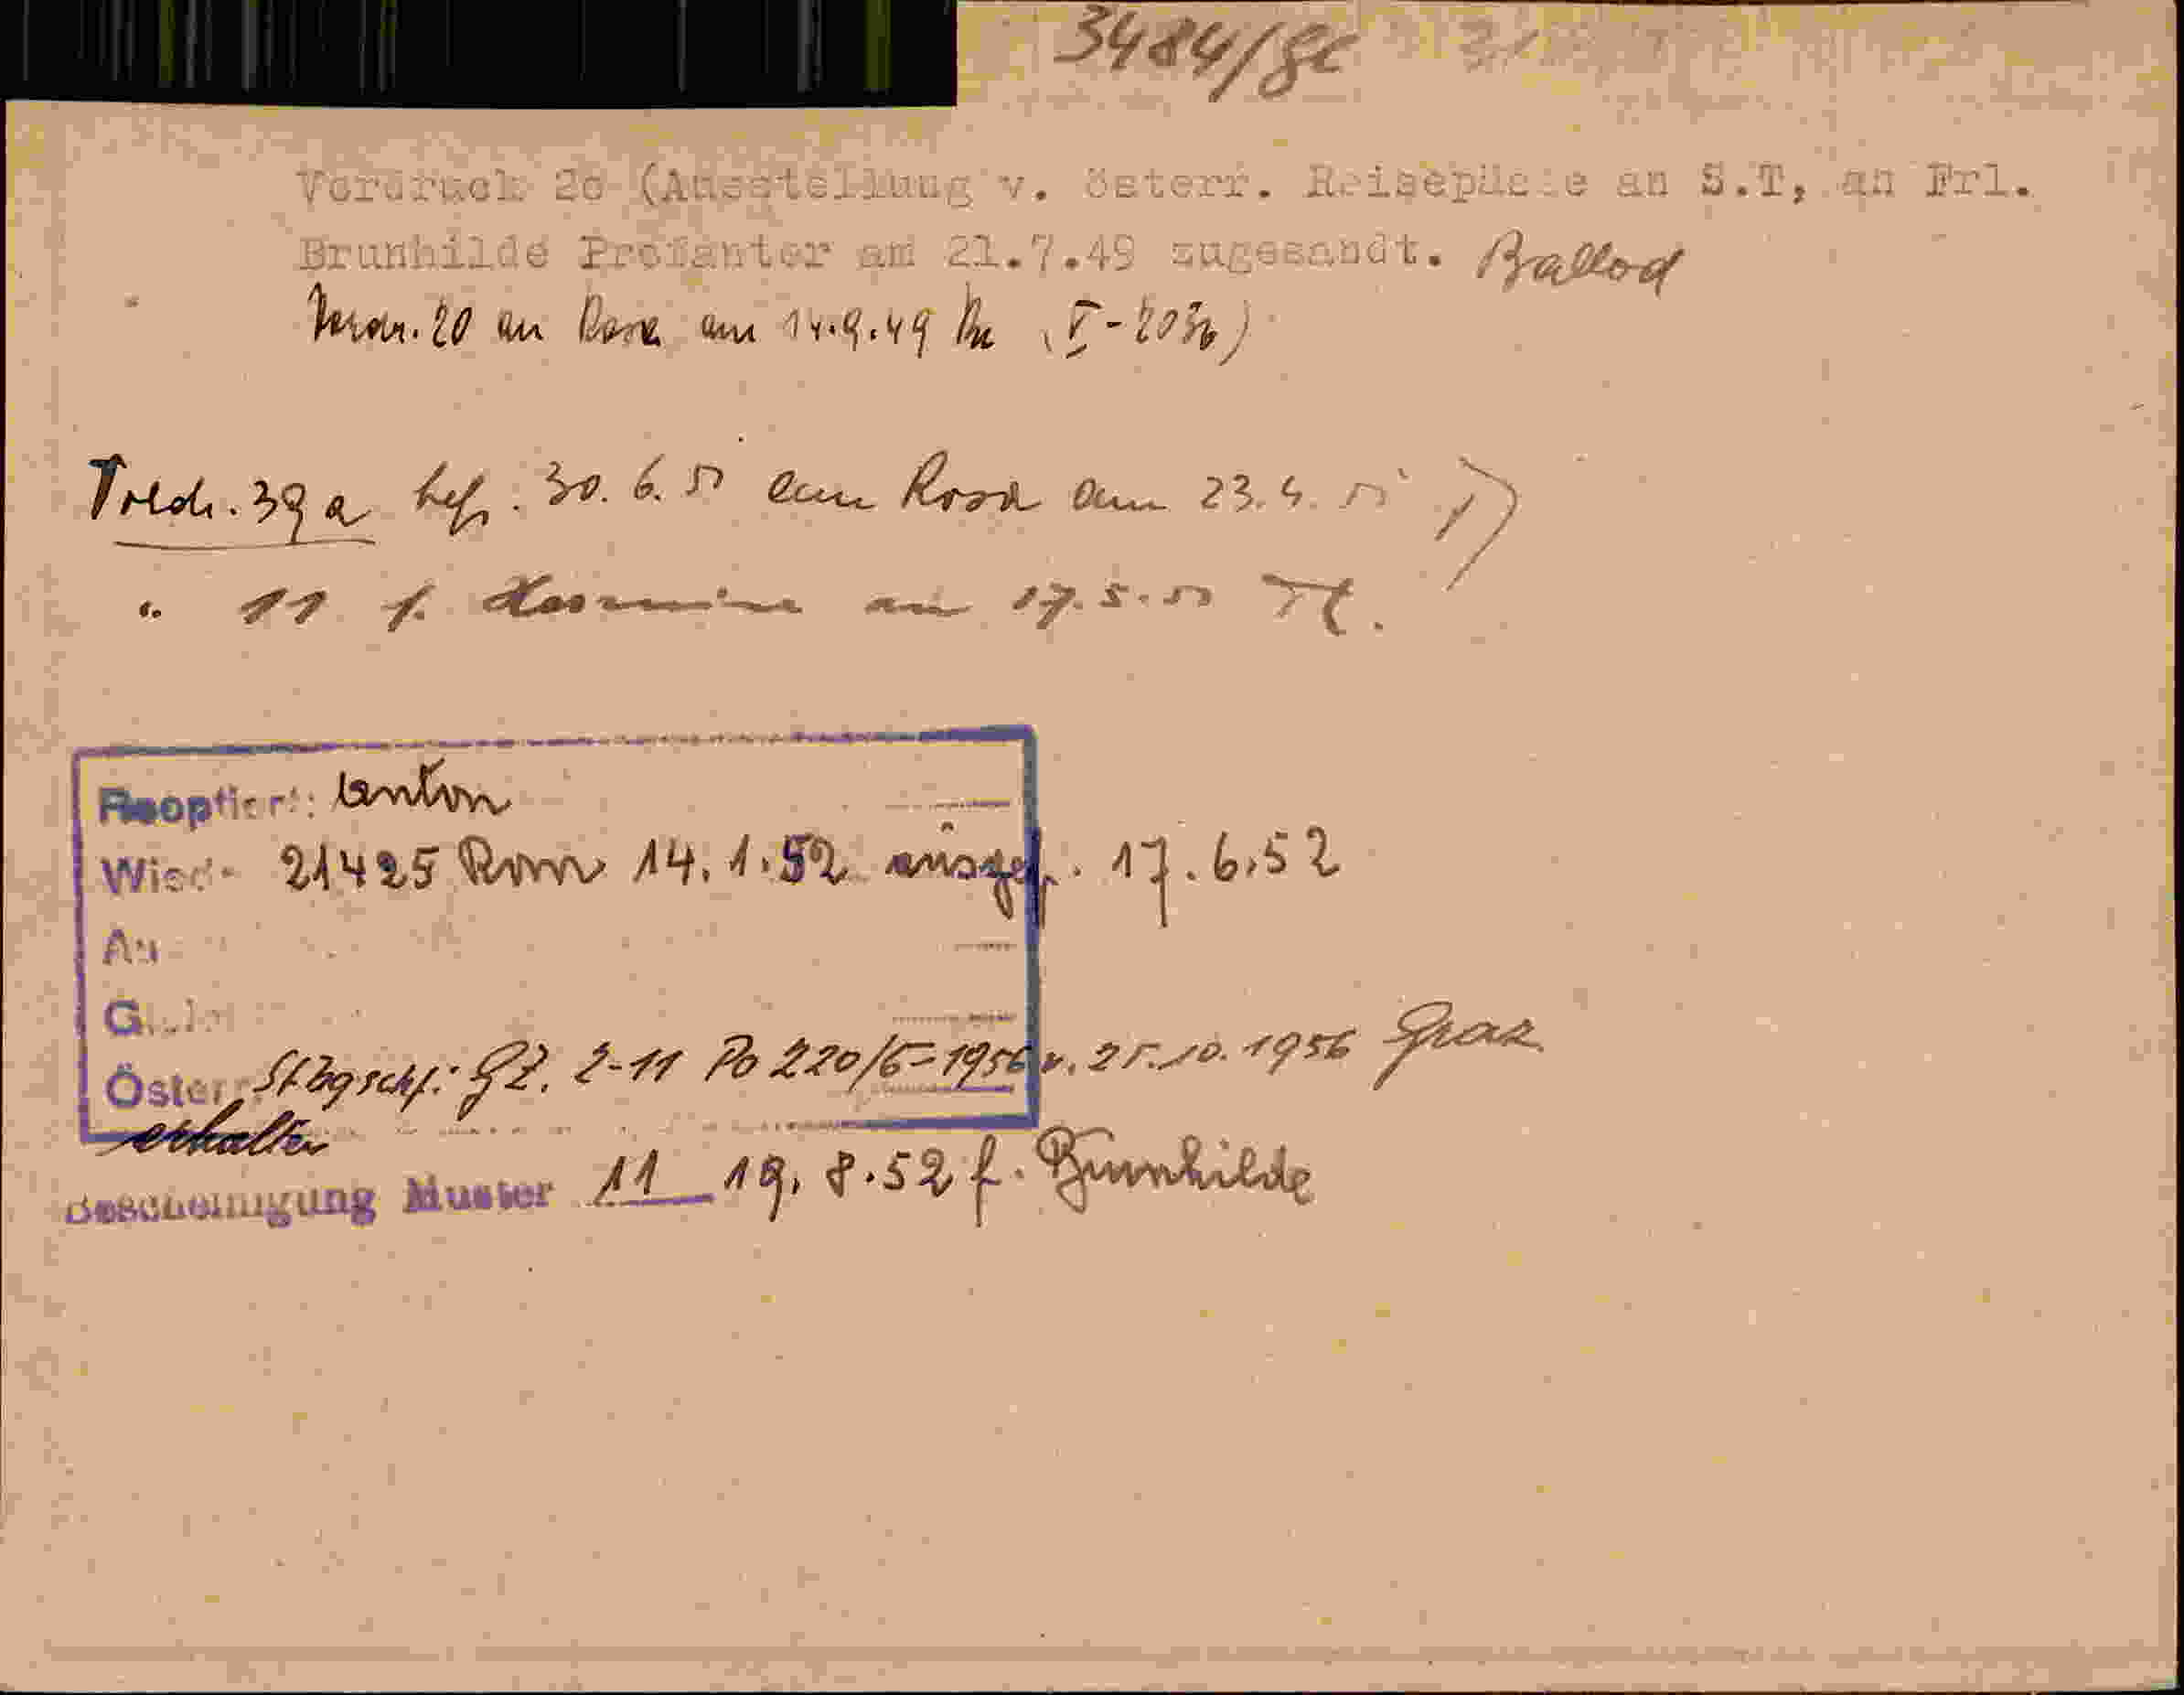 3484/
Vordruck 20 (Ausstellung v. österr. Reisepässe an S.T, an Frl.
Brunhilde Profanter am 21.7.49 zugesandt. Ballod
Vordr. 20 an Rosa am 14.9.49
Vordr. 39 a bef. 30.6.50 an Rosa am 23.4.50
" 11 f. Hermine am 17.5.50
Reoptiert: Anton
21425 Rom 14.1.52 ausgef. 17.6.52
Österr. Stbgschf: GZ. 2-11 Po 220/5-1956 v. 25.10.1956 Graz
erhalten
Bescheinigung Muster 11 19.8.52 f. Brunhilde